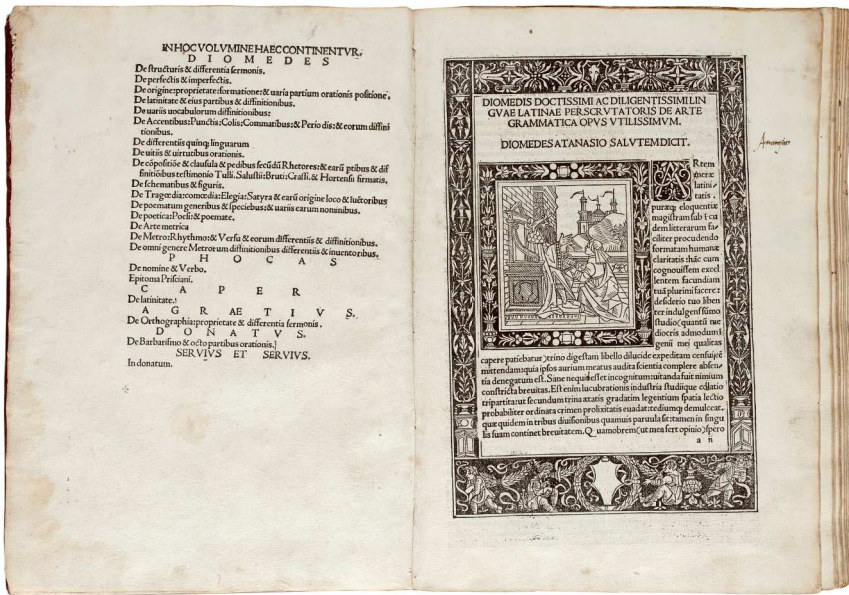 IN HOC VOLVMINE HAEC CONTINENTVR.
DIOMEDES
De structuris & differentia sermonis.
De perfectis & imperfectis.
De origine:proprietate:formatione:& uaria partium orationis positione.
De latinitate & eius partibus & diffinitionibus.
De uariis uocabulorum diffinitionibus:
De Accentibus:Punctis:Colis:Commatibus:& Perio dis:& eorum diffini
tionibus.
De differentiis quinq; linguarum
De uitiis & uirtutibus orationis.
De cōpositiōe & clausula & pedibus secūdū Rhetores:& earū ptibus & dif
finitiōibus testimonio Tulli. Salustii:Bruti:Crassi. & Hortensii firmatis.
De schematibus & figuris.
De Tragœdia:comœdia:Elegia:Satyra & earū origine loco & luctoribus
De poematum generibus & speciebus:& uariis earum nominibus.
De poetica:Poesi:& poemate.
De Arte metrica
De Metro:Rhythmo:& Versu & eorum differentiis & diffinitionibus.
De omni genere Metrorum diffinitionibus differentiis & inuentoribus.
PHOCAS
De nomine & Verbo.
Epitoma Prisciani.
CAPER
De latinitate.
AGRAETIVS.
De Orthographia:proprietate & differentia sermonis.
DONATVS.
De Barbarismo & octo partibus orationis.
SERVIVS ET SERVIVS.
In donatum.
DIOMEDIS DOCTISSIMI AC DILIGENTISSIMI LIN
GVAE LATINAE PERSCRVTATORIS DE ARTE
GRAMMATICA OPVS VTILISSIMVM.
DIOMEDES ATANASIO SALVTEM DICIT.
ARtem
meræ
latini-
tatis
puræq; eloquentiæ
magistram sub ī cu
dem litterarum fa-
ciliter procudendo
formatam humanæ
claritatis:hāc cum
cognouissem excel
lentem facundiam
tuā plurimi facere:
desiderio tuo liben
ter indulgentissimo
studio(quantū me
diocris admodum ī
genii mei qualitas
capere patiebatur)trino digestam libello dilucide expeditam censui cē
mittendam:quia ipsos aurium meatus audita scientia complere absen-
tia denegatum est. Sane nequid esset incognitum:uitanda fuit nimium
constricta breuitas. Est enim lucubrationis industria studiique collatio
tripartita:ut secundum trina ætatis gradatim legentium spatia lectio
probabiliter ordinata crimen prolixitatis euadat:tediumq; demulceat.
quæ quidem in tribus diuisionibus quamuis paruula sit:tamen in singu
lis suam continet breuitatem. Quamobrem(ut mea fert opinio)spero
a ii